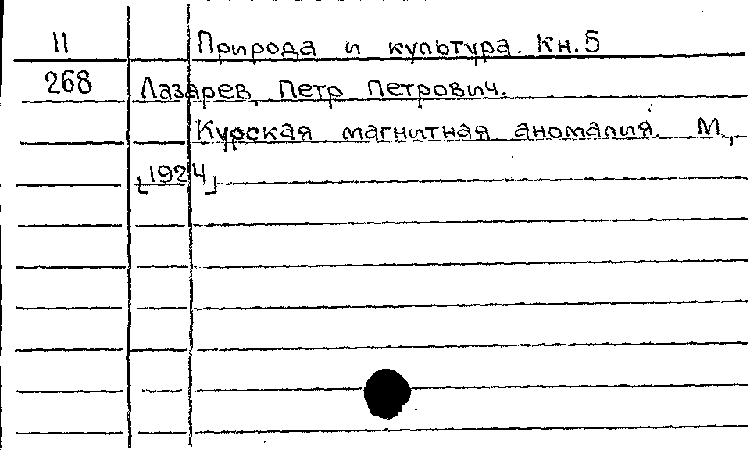 II Природа и культура. Кн. 5
268 Лазарев, Петр Петрович.
Курская магнитная аномалия. М.,
[1924]